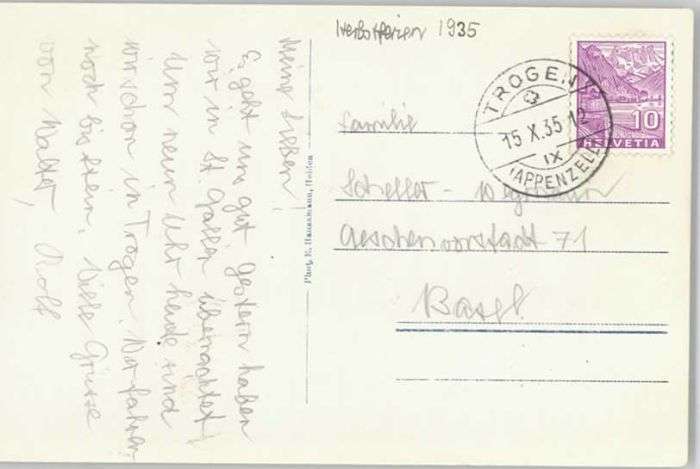 Herbstferien 1935
Meine Lieben!
Es geht uns gut gestern haben
wir in St. Gallen übernachtet
Um neun Uhr heute sind
wir schon in Trogen. Wir fahren
noch bis Stein. Viele Grüsse
von Walter, Rolf
Phot. E. Hausamann, Heiden
TROGEN
15 X 35 12
IX
(APPENZELL)
10
HELVETIA
Familie
Aeschenvorstadt 71
Basel